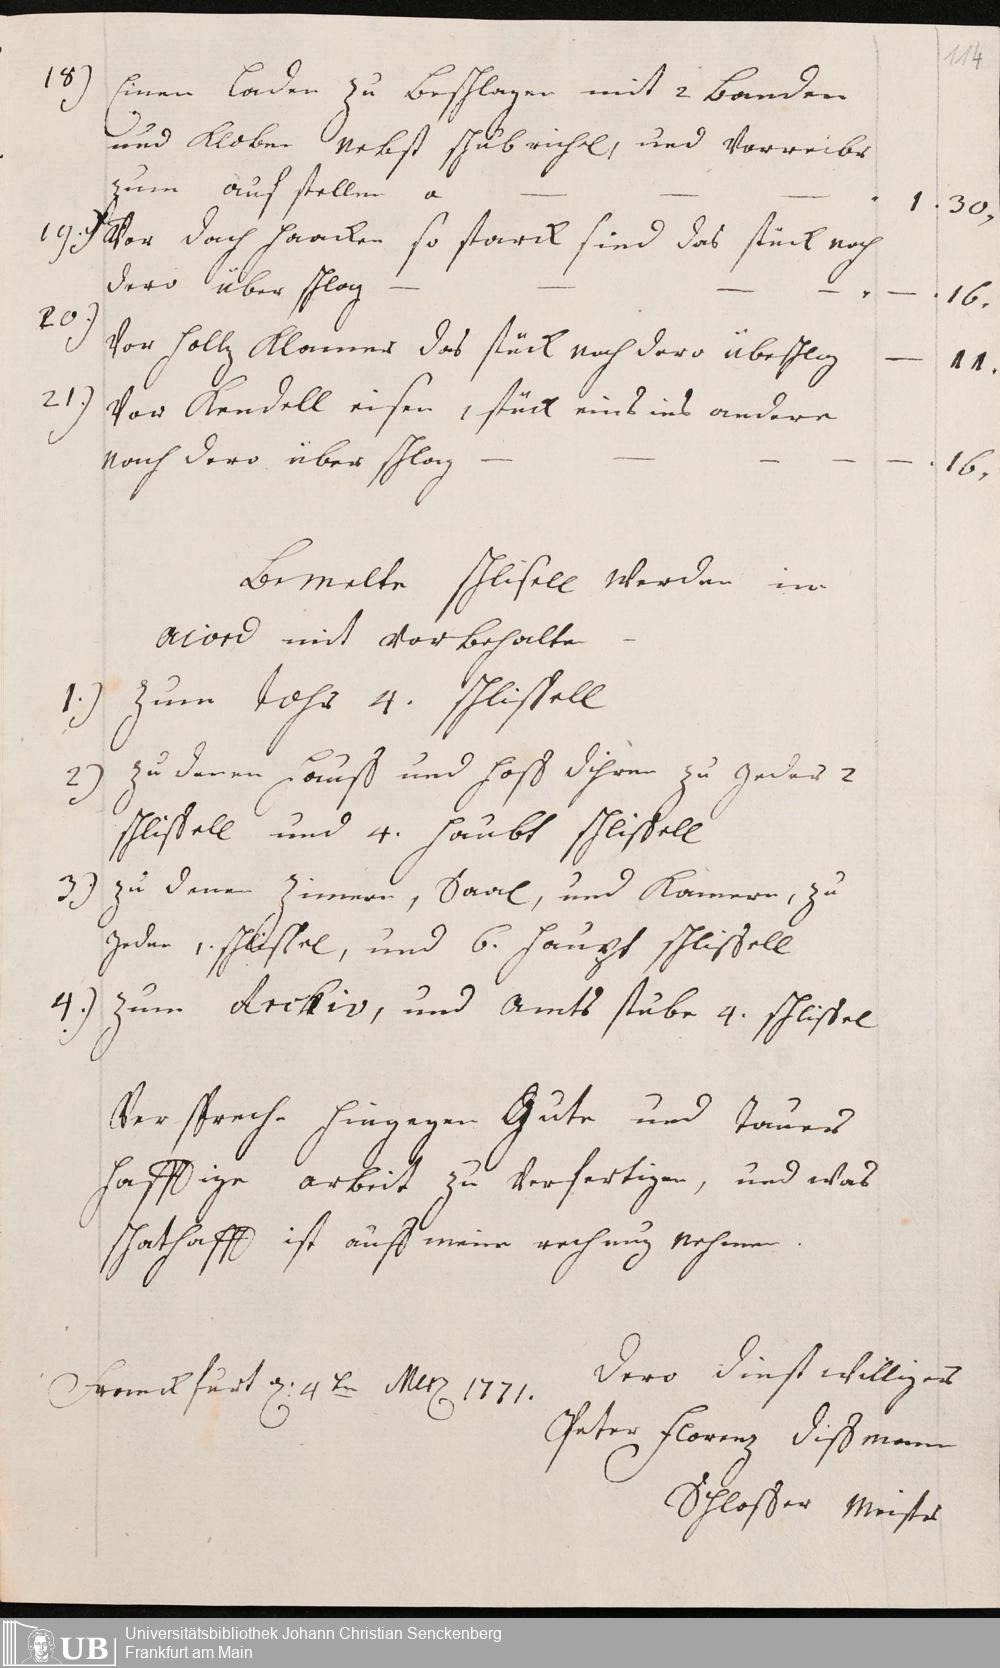 114
18) Einen Laden zu beschlagen mit 2 Banden
und Kloben nebst schubrichel, und Vorreibr
zum auf stellen a — — — . 1 . 30,
19.) Vor dach haacken so starck sind das stück nach
dero über schlag — — — — . — . 16.
20.) Vor holtz Klamer das stück nach dero übeschlag — 11.
21.) Vor Kendell eisen 1 stück eins ins andere
nach dero über schlag — — — — — . 16,
Bemelte schlisell werden in
acord mit vorbehalte –
1.) zum tohr 4. schlissell
2) zu denen Hauss und hoff dihren zu jeder 2
schlissell und 4. haubt schlissell
3.) zu denen Zimern, Saal, und Kamern, zu
jeder 1. schlissel, und 6. haupt schlissell
4.) zum Archiv, und Amts stube 4. schlissel
Ver spreche hingegen Gute und tauer
hafftige arbeit zu verfertigen, und was
schathafft ist auff meine rechnung nehmen.
Franckfurt d: 4 tn Merz 1771.
Dero dinst williger
Peter Florenz Dissmann
Schlosser Meister
UB
Universitätsbibliothek Johann Christian Senckenberg
Frankfurt am Main